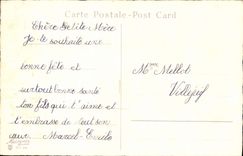 Carte Postale - Post Card
Chère Petite Mère
Je te souhaite une
bonne fête et
surtout bonne santé
ton fils qui t'aime et
t'embrasse de tout son
cœur Marcel
Mme Mellot
Villejuif